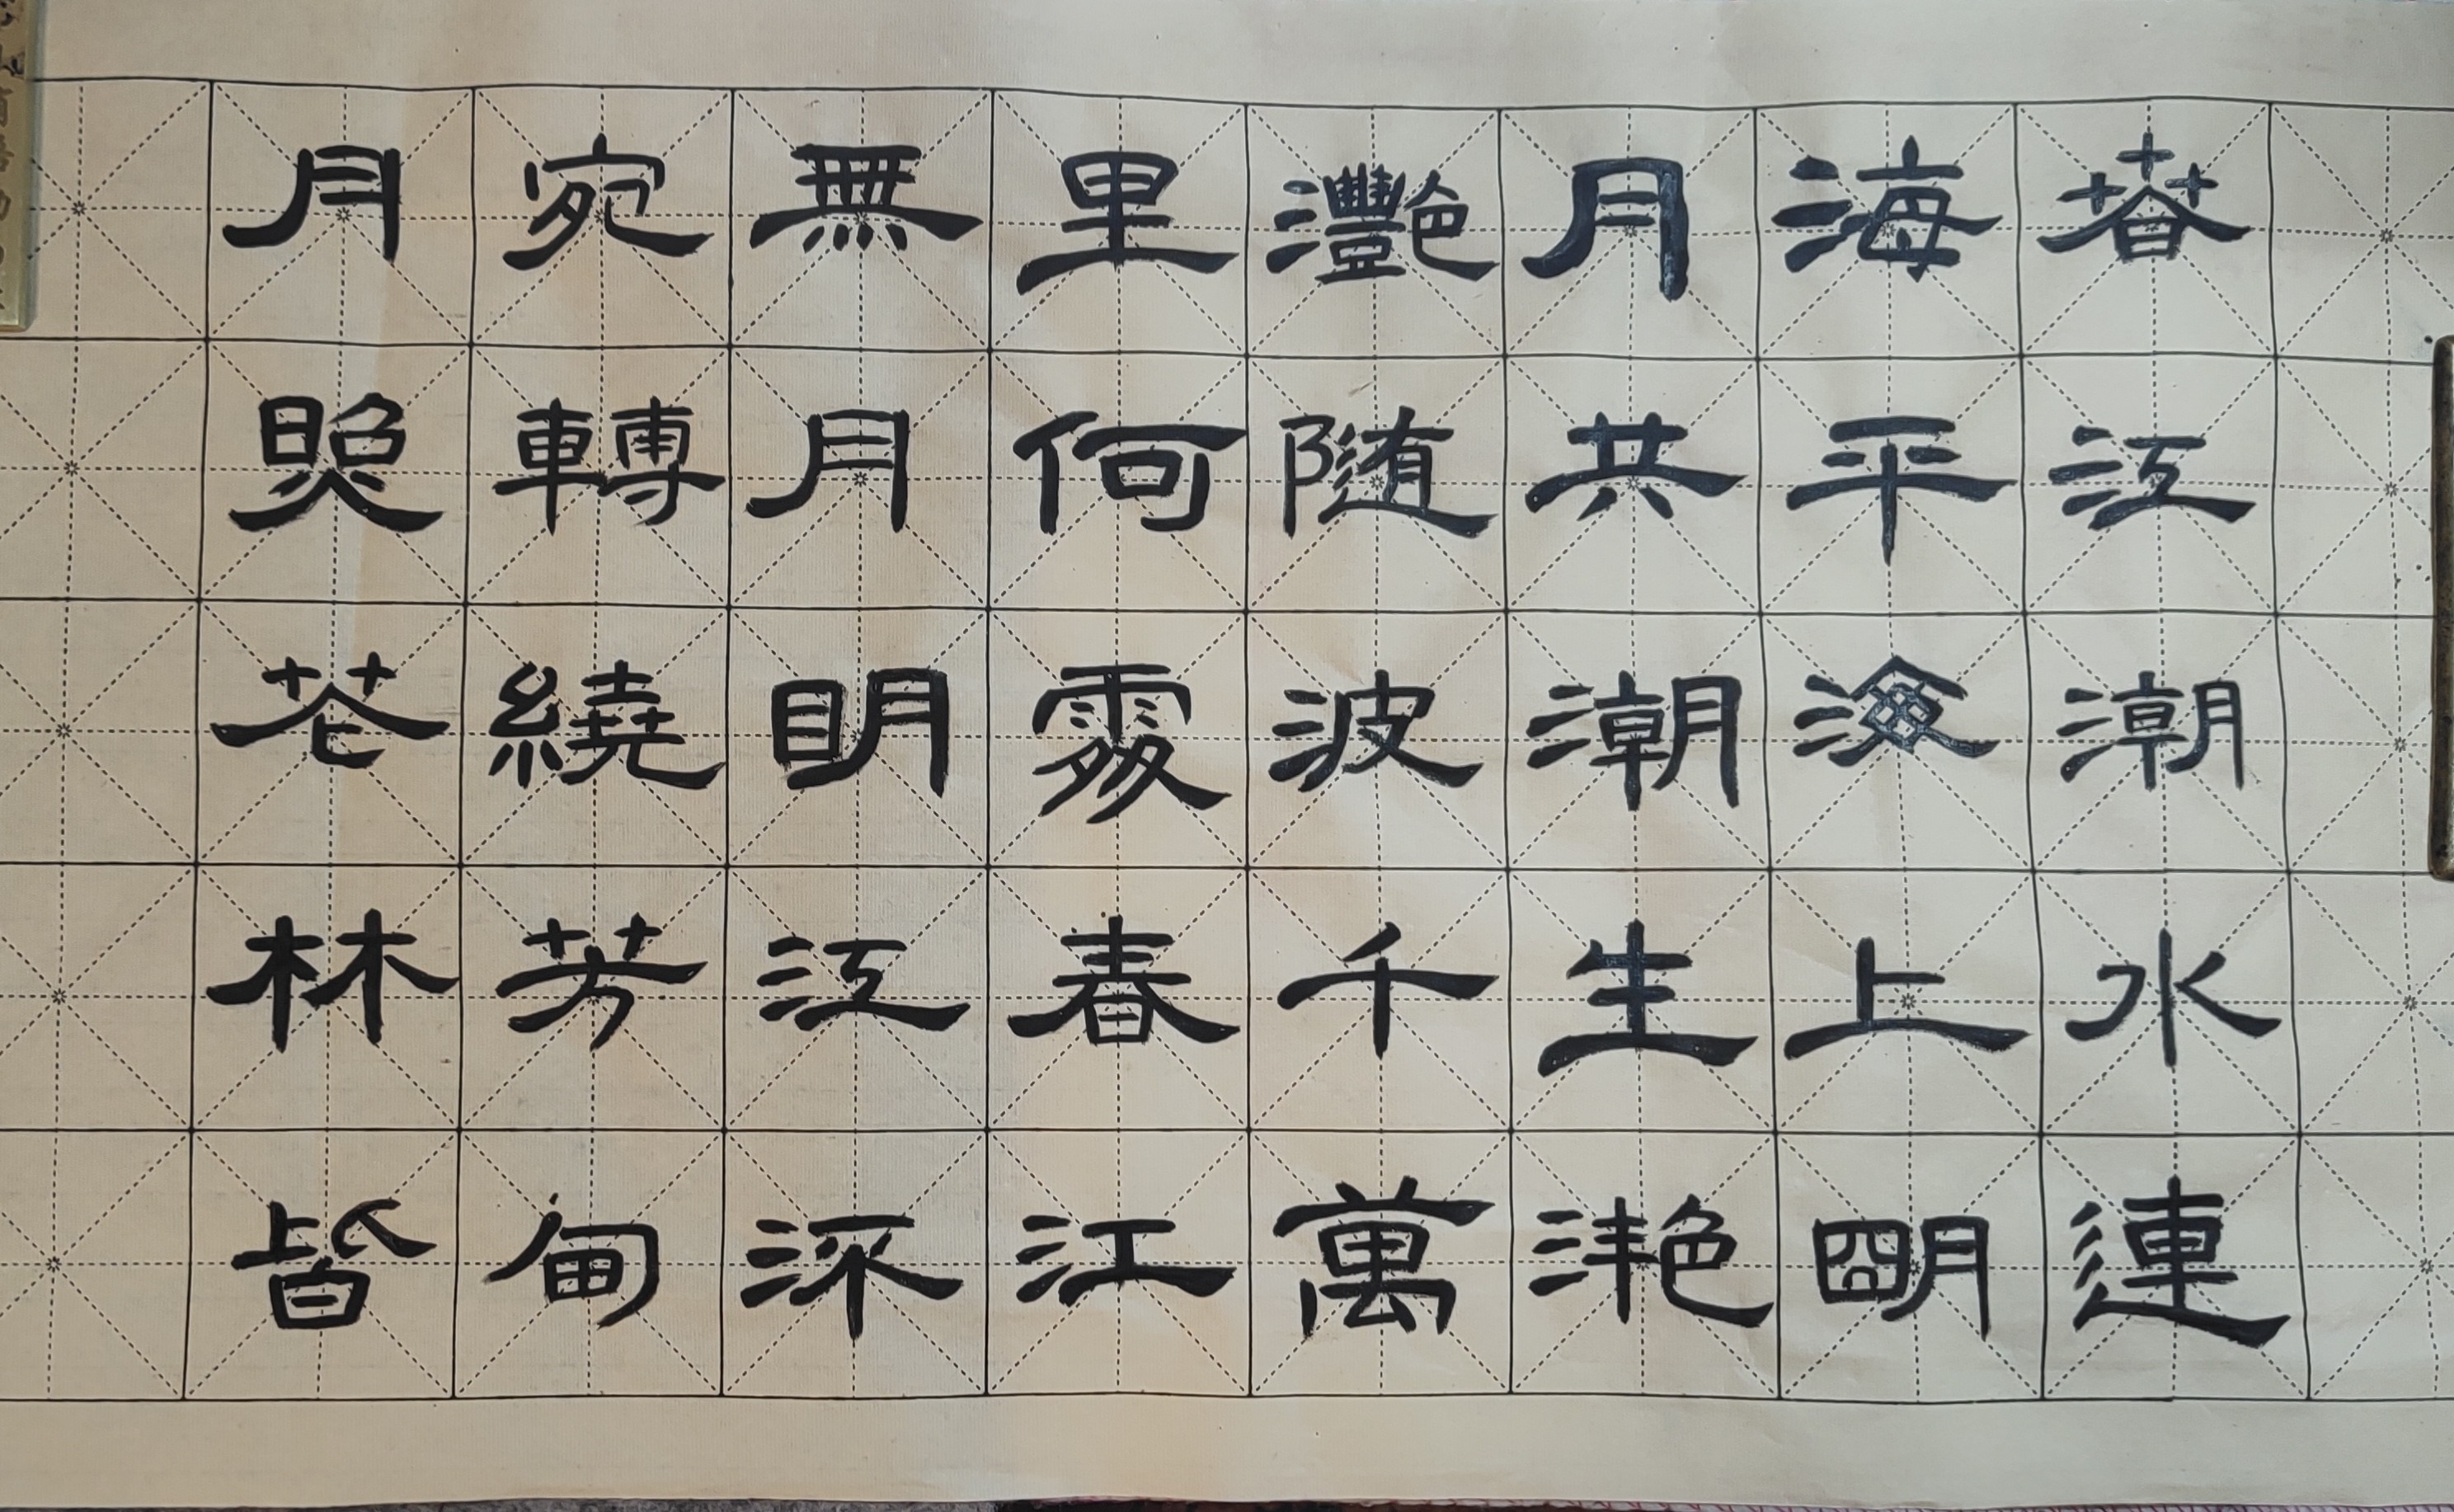 春江潮水連
海平海上明
月共潮生滟
灩随波千萬
里何處春江
無月明江流
宛轉繞芳甸
月照花林皆